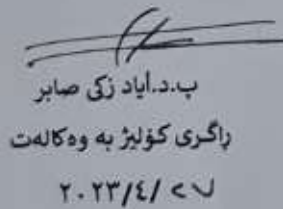 پ.د.أياد زكي صابر
ڕاگری کۆلێژ بە وەکالەت
٢٠٢٣/٤/ ٢٧